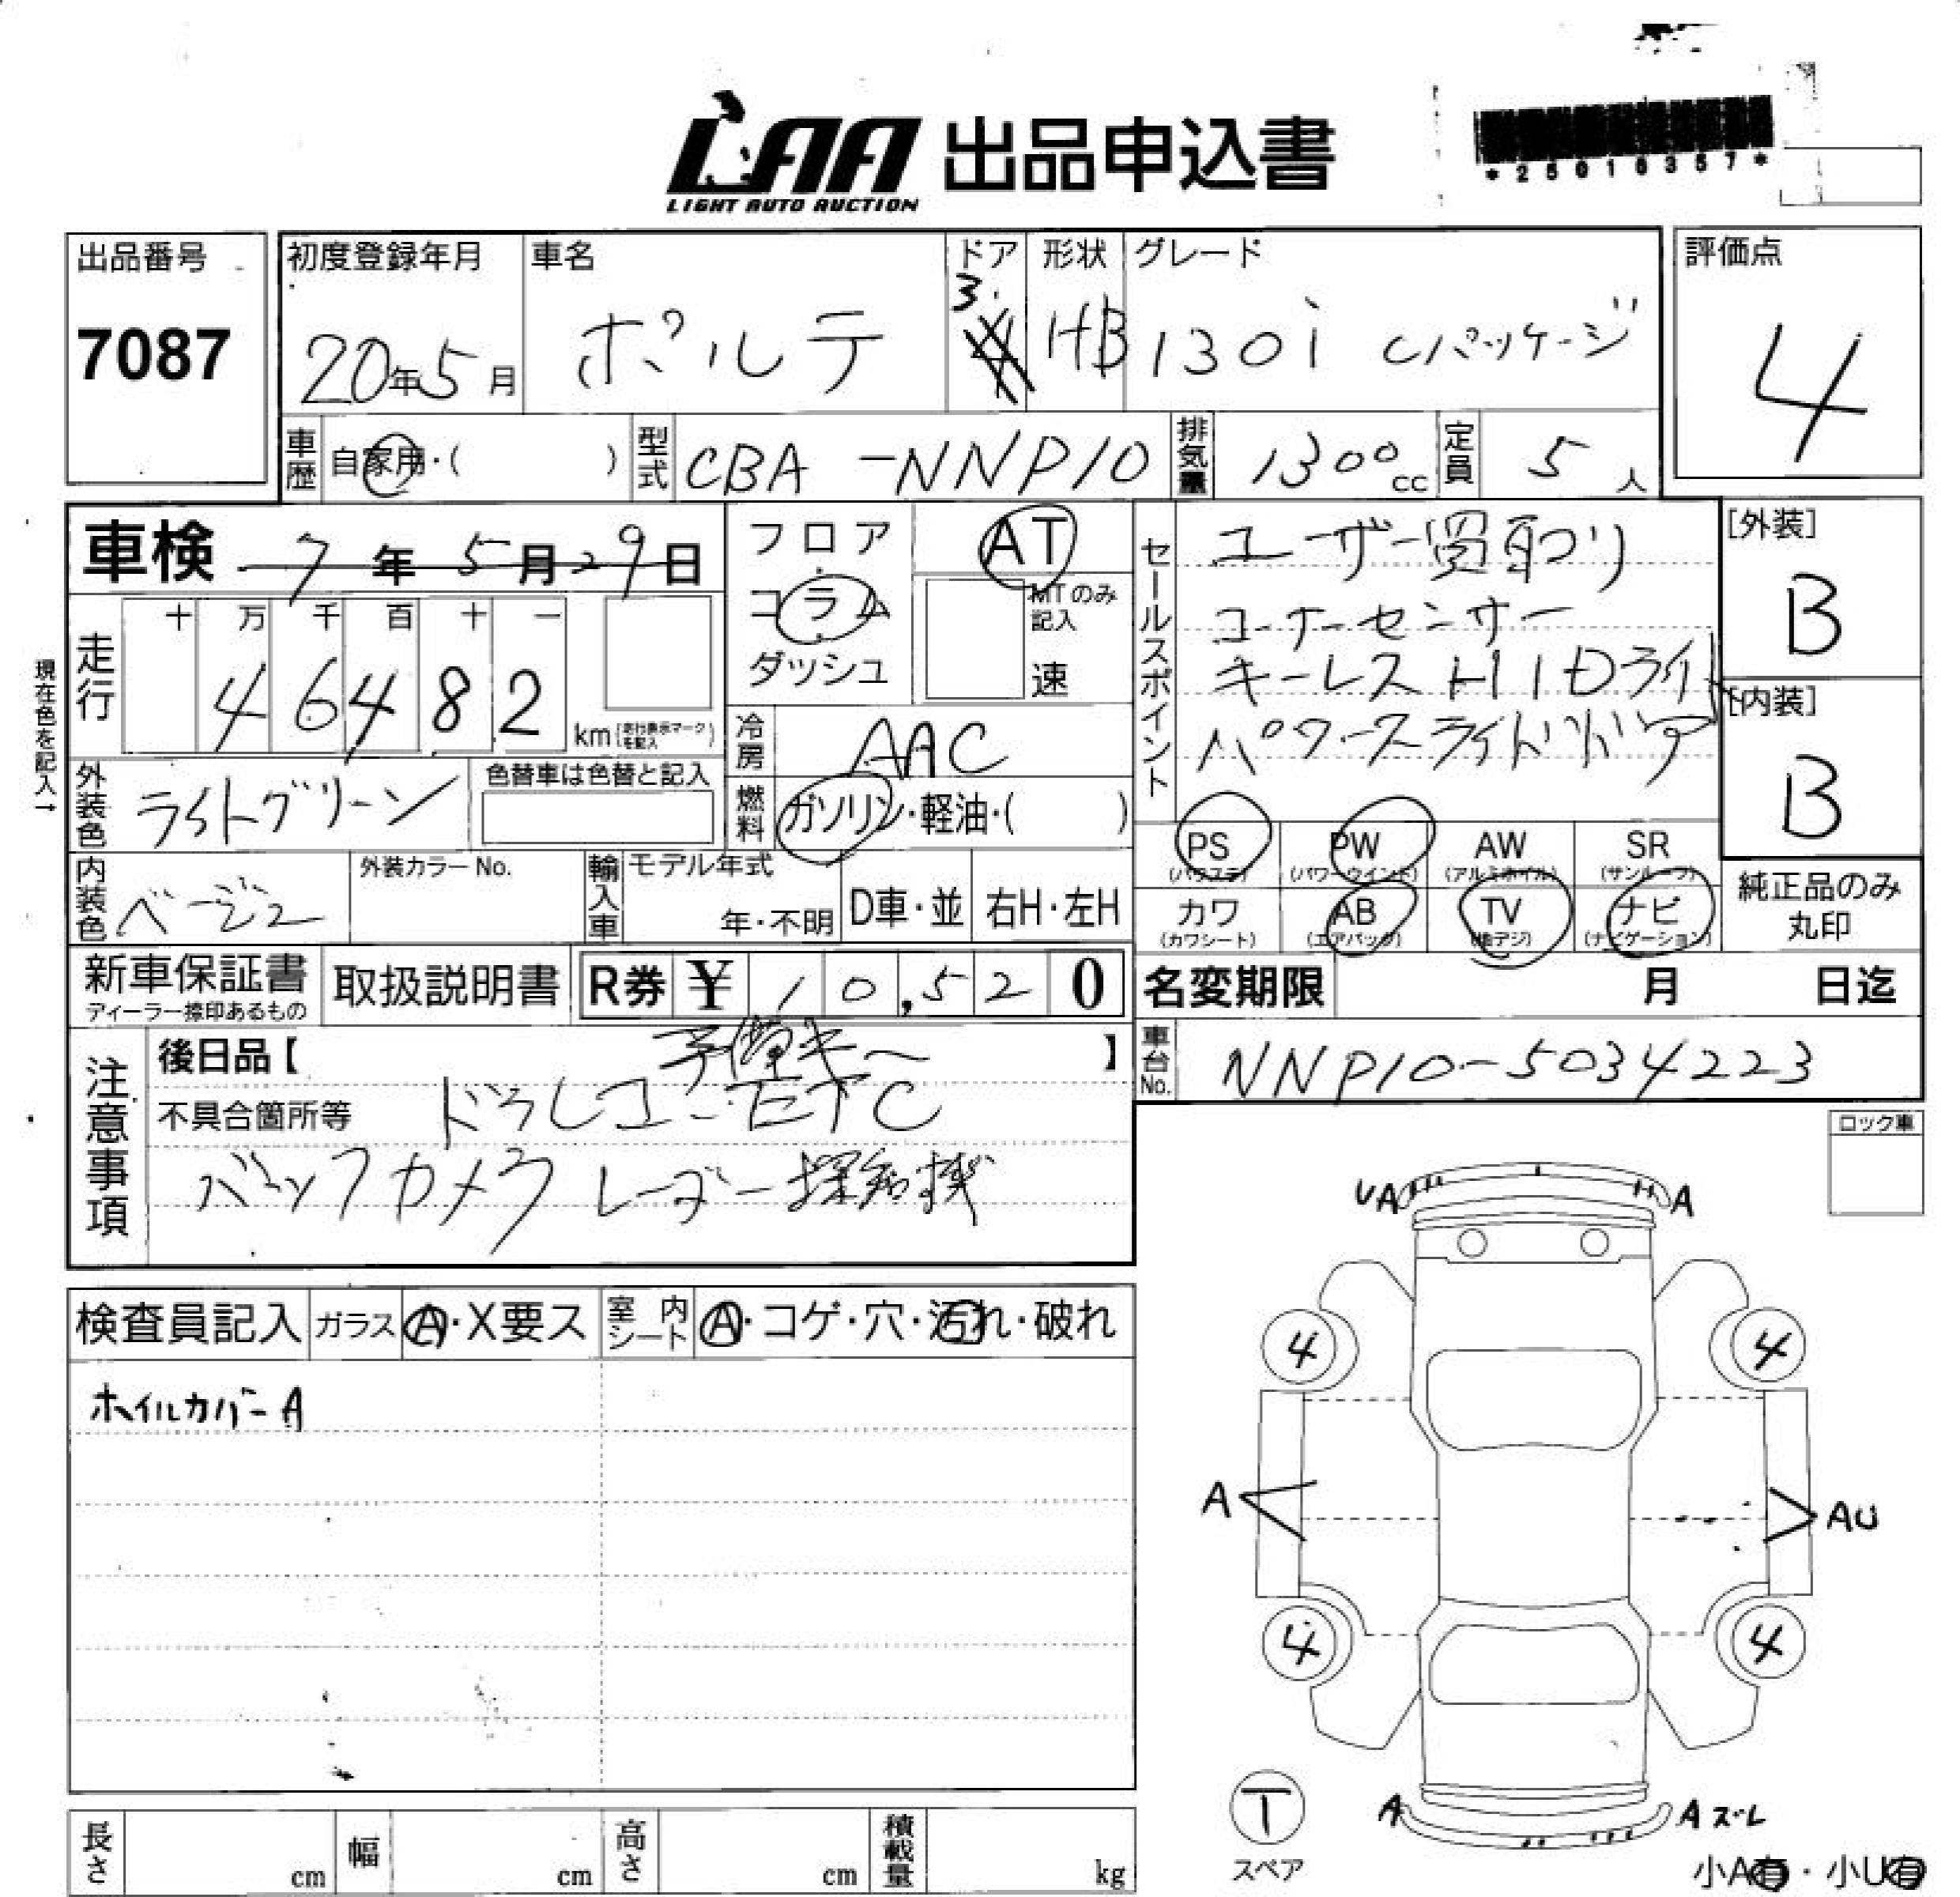 LAA 出品申込書
LIGHT AUTO AUCTION
*25016357*
出品番号
7087
初度登録年月
20年5月
車名
ポルテ
ドア
3
形状
HB
グレード
130i Cパッケージ
評価点
4
車歴 自家用・( )
型式 CBA-NNP10
排気量 1300cc
定員 5人
車検 7年5月29日
走行 十 万 千 百 十 一
4 6 4 8 2
km (走行表示マークを記入)
現在色を記入→
外装色 ライトグリーン
色替車は色替と記入
内装色 ベージュ
外装カラーNo.
フロア・コラム・ダッシュ
AT
MTのみ記入
速
冷房 AAC
燃料 ガソリン・軽油・( )
輸入車 モデル年式
年・不明 D車・並 右H・左H
セールスポイント
ユーザー買取り
コーナーセンサー
キーレス HIDライト
パワースライドドア
[外装]
B
[内装]
B
PS (パワステ) PW (パワーウインド) AW (アルミホイル) SR (サンルーフ)
カワ (カワシート) AB (エアバック) TV (地デジ) ナビ (ナビゲーション)
純正品のみ
丸印
新車保証書
ディーラー捺印あるもの
取扱説明書
R券 ¥ 10,520
名変期限 月 日迄
車台No. NNP10-5034223
注意事項
後日品【 】
予備キー
不具合箇所等
ドラレコ・ETC
バックカメラ レーダー探知機
ロック車
検査員記入 ガラス A・X要ス 室内シート A・コゲ・穴・汚れ・破れ
ホイルカバーA
UA A
4 4
A AU
4 4
T
スペア
A A ズレ
小A有・小U有
長さ cm 幅 cm 高さ cm 積載量 kg